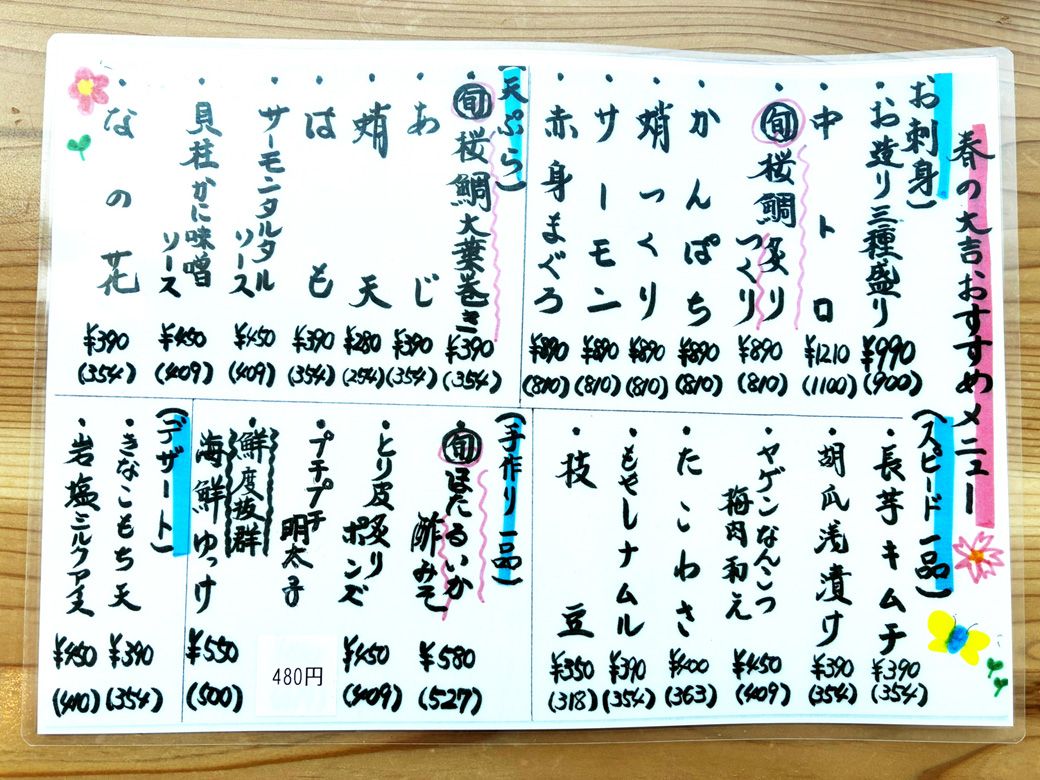 春の大吉おすすめメニュー
(お刺身)
・お造り三種盛り ¥990 (900)
・中トロ ¥1210 (1100)
・旬 桜鯛炙りつくり ¥890 (810)
・かんぱち ¥890 (810)
・蛸つくり ¥890 (810)
・サーモン ¥890 (810)
・赤身まぐろ ¥890 (810)
(天ぷら)
・旬 桜鯛大葉巻き ¥390 (354)
・あじ ¥390 (354)
・蛸天 ¥280 (254)
・はも ¥390 (354)
・サーモンタルタルソース ¥450 (409)
・貝柱かに味噌ソース ¥450 (409)
・なの花 ¥390 (354)
(スピード一品)
・長芋キムチ ¥390 (354)
・胡瓜浅漬け ¥390 (354)
・ヤゲンなんこつ梅肉和え ¥450 (409)
・たこわさ ¥400 (363)
・もやしナムル ¥390 (354)
・枝豆 ¥350 (318)
(手作り一品)
・旬 ほたるいか酢みそ ¥580 (527)
・とり皮炙りポンズ ¥450 (409)
・プチプチ明太子 480円
・鮮度抜群 海鮮ゆっけ ¥550 (500)
(デザート)
・きなこもち天 ¥390 (354)
・岩塩ミルクアイス ¥450 (410)